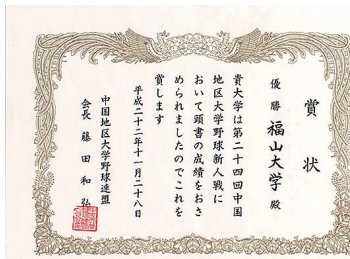 賞状
優勝 福山大学 殿
貴大学は第二十四回中国
地区大学野球新人戦に
おいて頭書の成績をおさ
められましたのでこれを
賞します
平成二十二年十一月二十八日
中国地区大学野球連盟
会長 藤田和弘